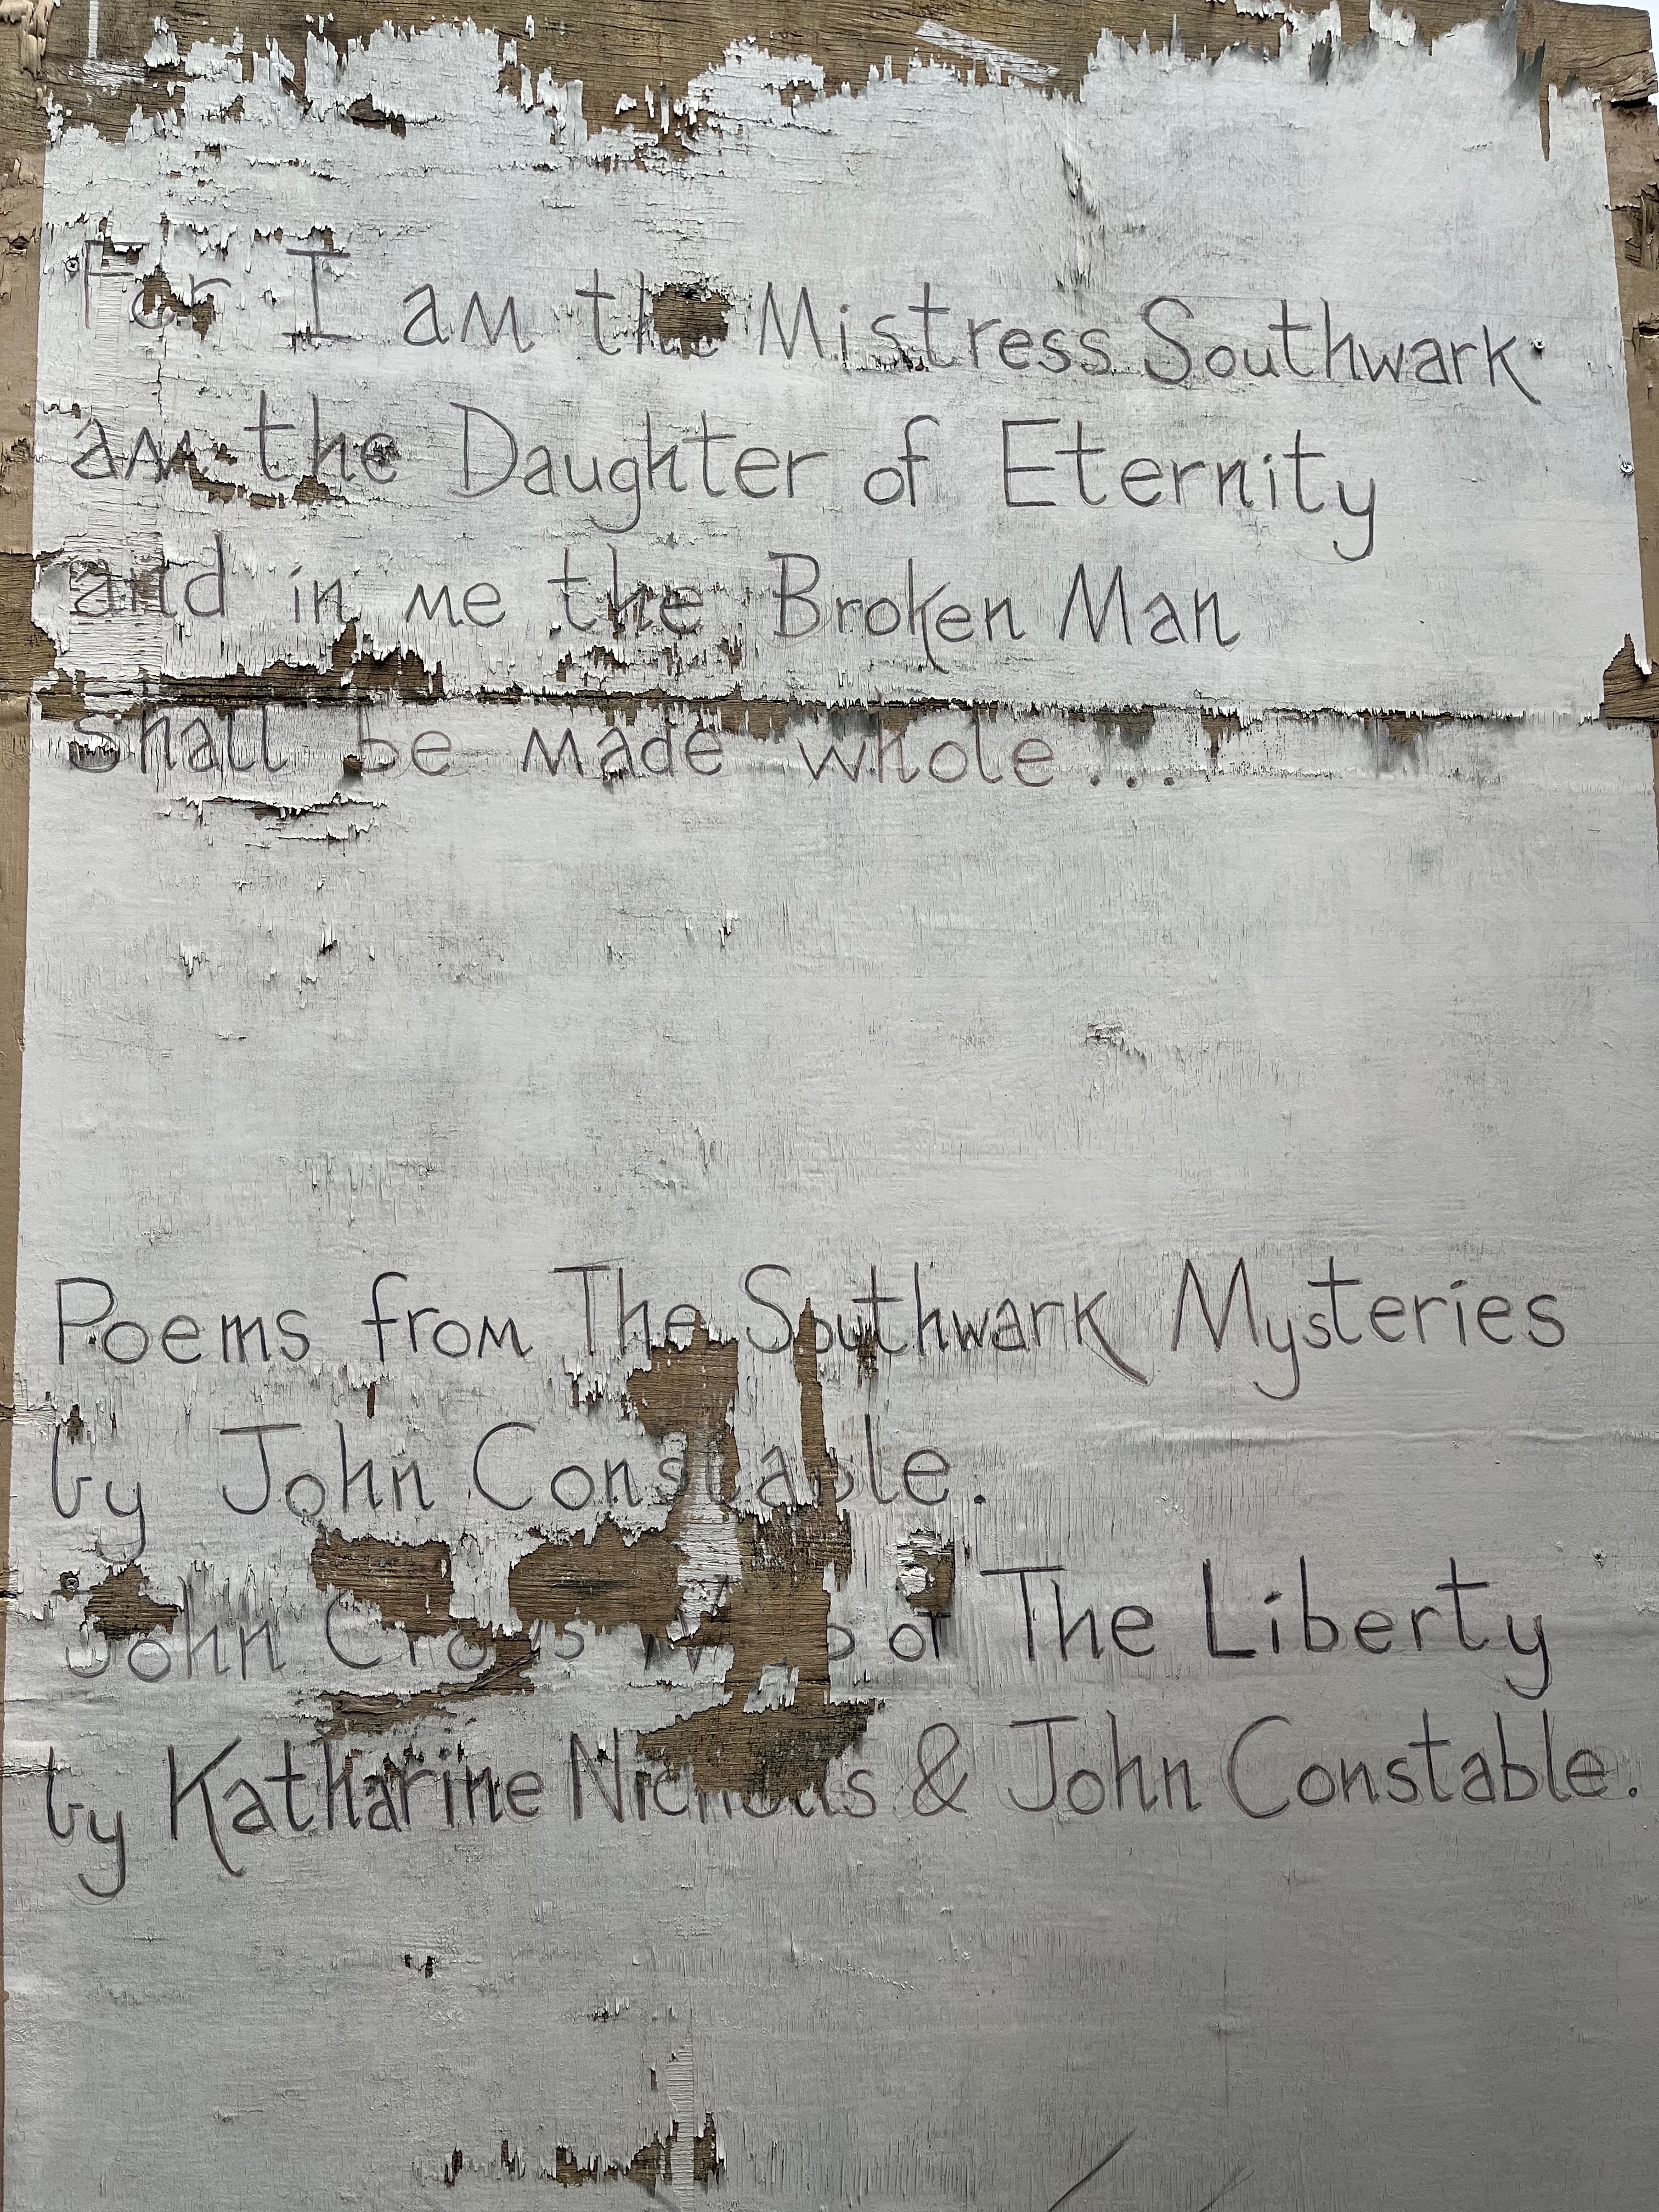 For I am the Mistress Southwark
am the Daughter of Eternity
and in me the Broken Man
shall be made whole...
Poems from The Southwark Mysteries
by John Constable.
John Crow's of The Liberty
by Katharine Nicholls & John Constable.